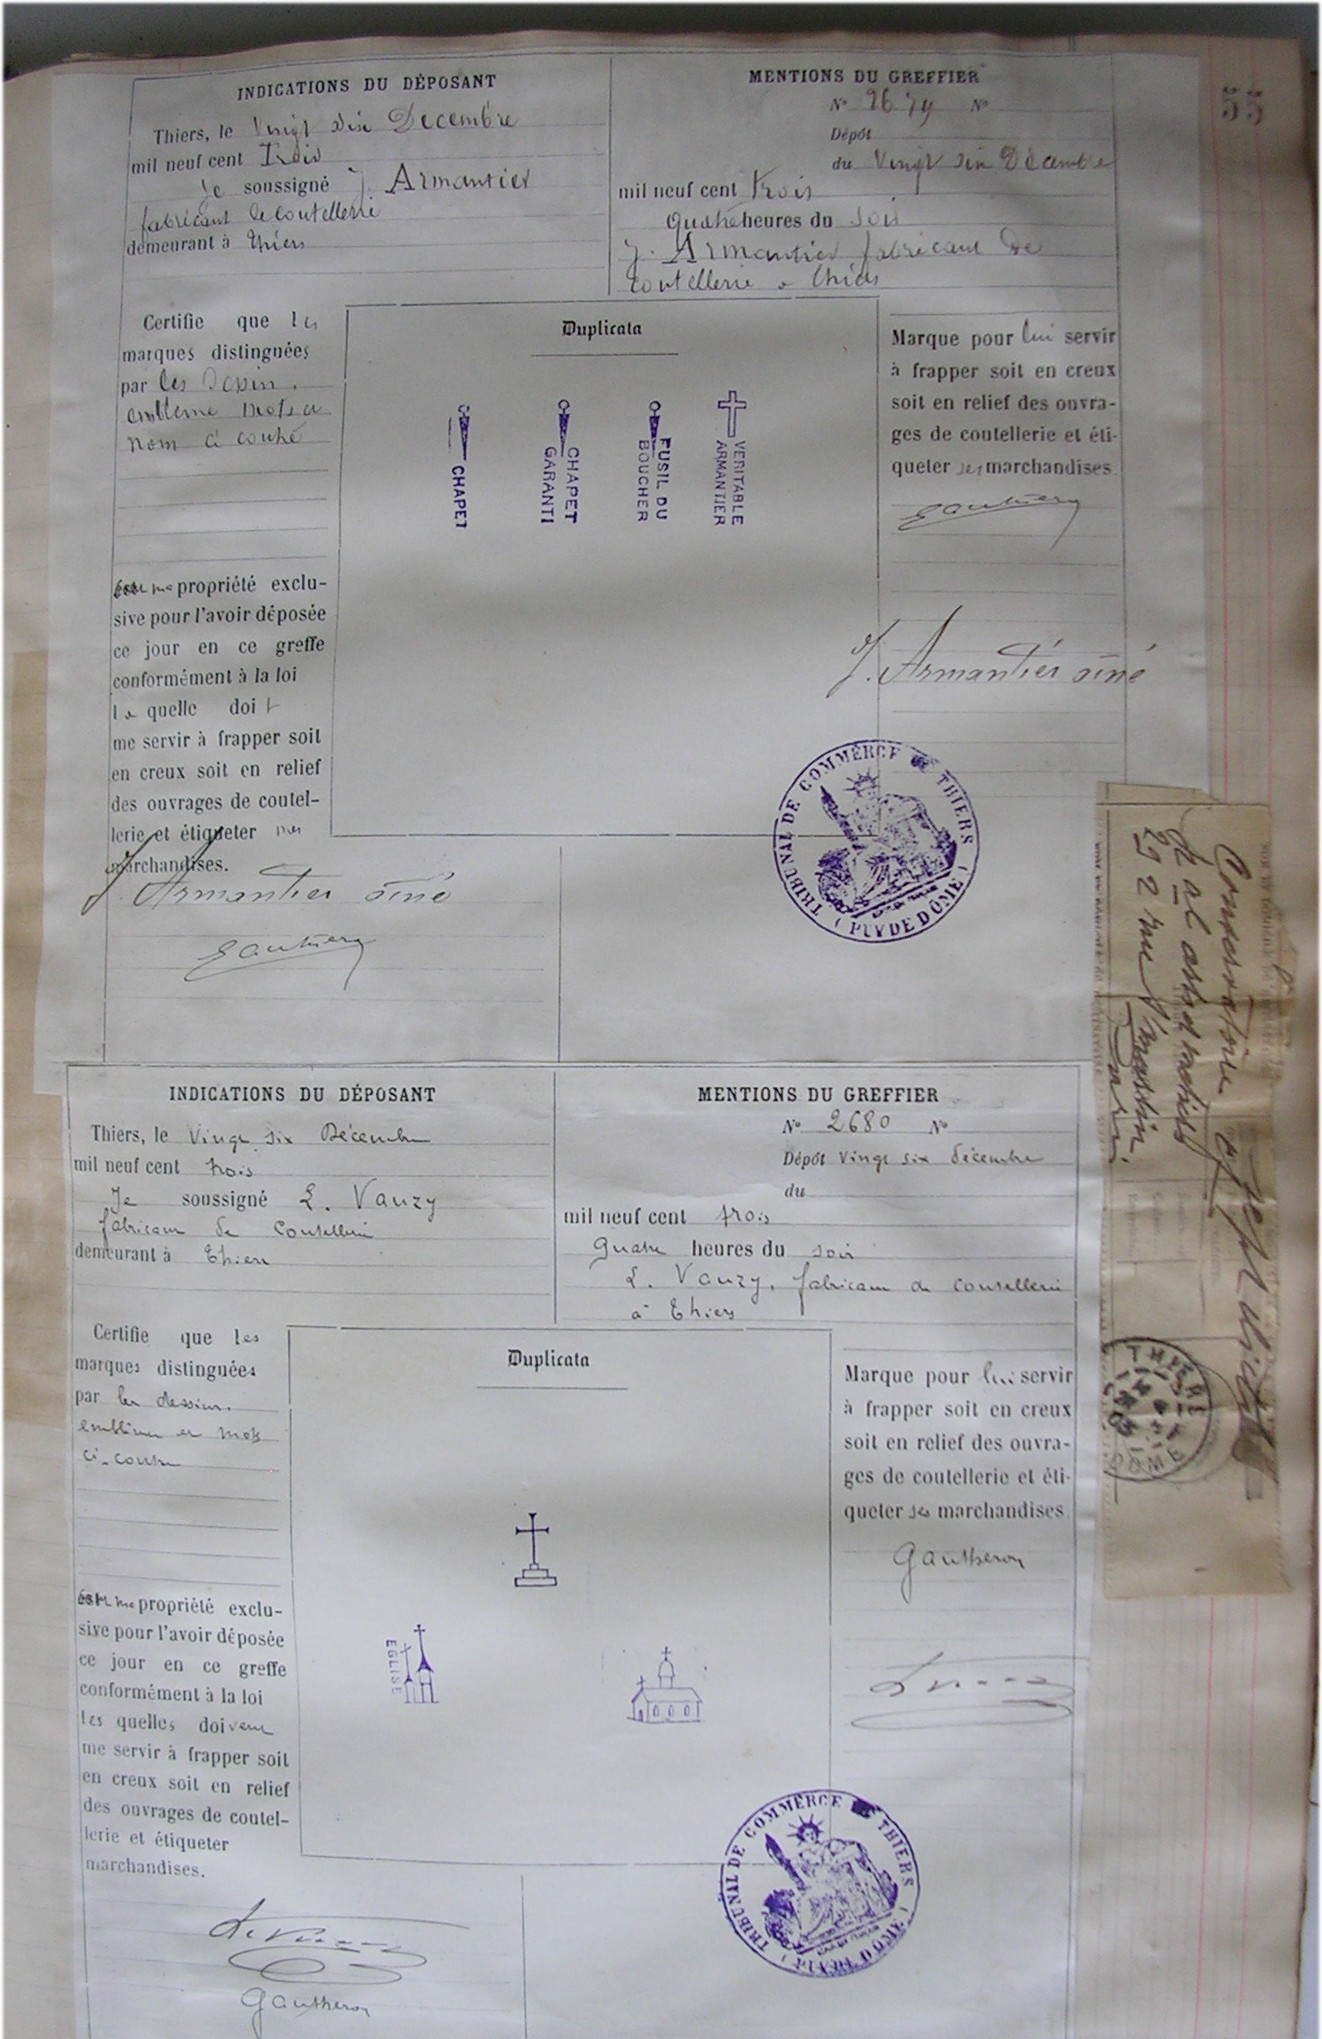 55
INDICATIONS DU DÉPOSANT
Thiers, le Vingt Six Decembre
mil neuf cent Trois
Je soussigné J. Armantier
fabricant de coutellerie
demeurant à Thiers
MENTIONS DU GREFFIER
N° 2679 N°
Dépôt
du Vingt six Décembre
mil neuf cent trois
quatre heures du soir
J. Armantier fabricant De
coutellerie a Thiers
Certifie que les
marques distinguées
par les Dessin.
embleme mots et
nom ci contre
est ma propriété exclu-
sive pour l'avoir déposée
ce jour en ce greffe
conformément à la loi
la quelle doit
me servir à frapper soit
en creux soit en relief
des ouvrages de coutel-
lerie et étiqueter mes
marchandises.
J. Armantier ainé
Duplicata
CHAPET
CHAPET
GARANTI
FUSIL DU
BOUCHER
VERITABLE
ARMANTIER
Marque pour lui servir
à frapper soit en creux
soit en relief des ouvra-
ges de coutellerie et éti-
queter ses marchandises.
J. Armantier ainé
TRIBUNAL DE COMMERCE DE THIERS
(PUY DE DÔME)
INDICATIONS DU DÉPOSANT
Thiers, le Vingt six Décembre
mil neuf cent trois
Je soussigné L. Vauzy
fabricant de Coutellerie
demeurant à Thiers
MENTIONS DU GREFFIER
N° 2680 N°
Dépôt Vingt six décembre
du
mil neuf cent trois
quatre heures du soir
L. Vauzy, fabricant de coutellerie
à Thiers
Certifie que les
marques distinguées
par les dessins,
emblèmes et mots
ci-contre
est ma propriété exclu-
sive pour l'avoir déposée
ce jour en ce greffe
conformément à la loi
les quelles doivent
me servir à frapper soit
en creux soit en relief
des ouvrages de coutel-
lerie et étiqueter
marchandises.
Gautheron
Duplicata
EGLISE
Marque pour lui servir
à frapper soit en creux
soit en relief des ouvra-
ges de coutellerie et éti-
queter ses marchandises.
Gautheron
TRIBUNAL DE COMMERCE DE THIERS
(PUY DE DÔME)
Conservatoire
292 rue St Martin
THIERS